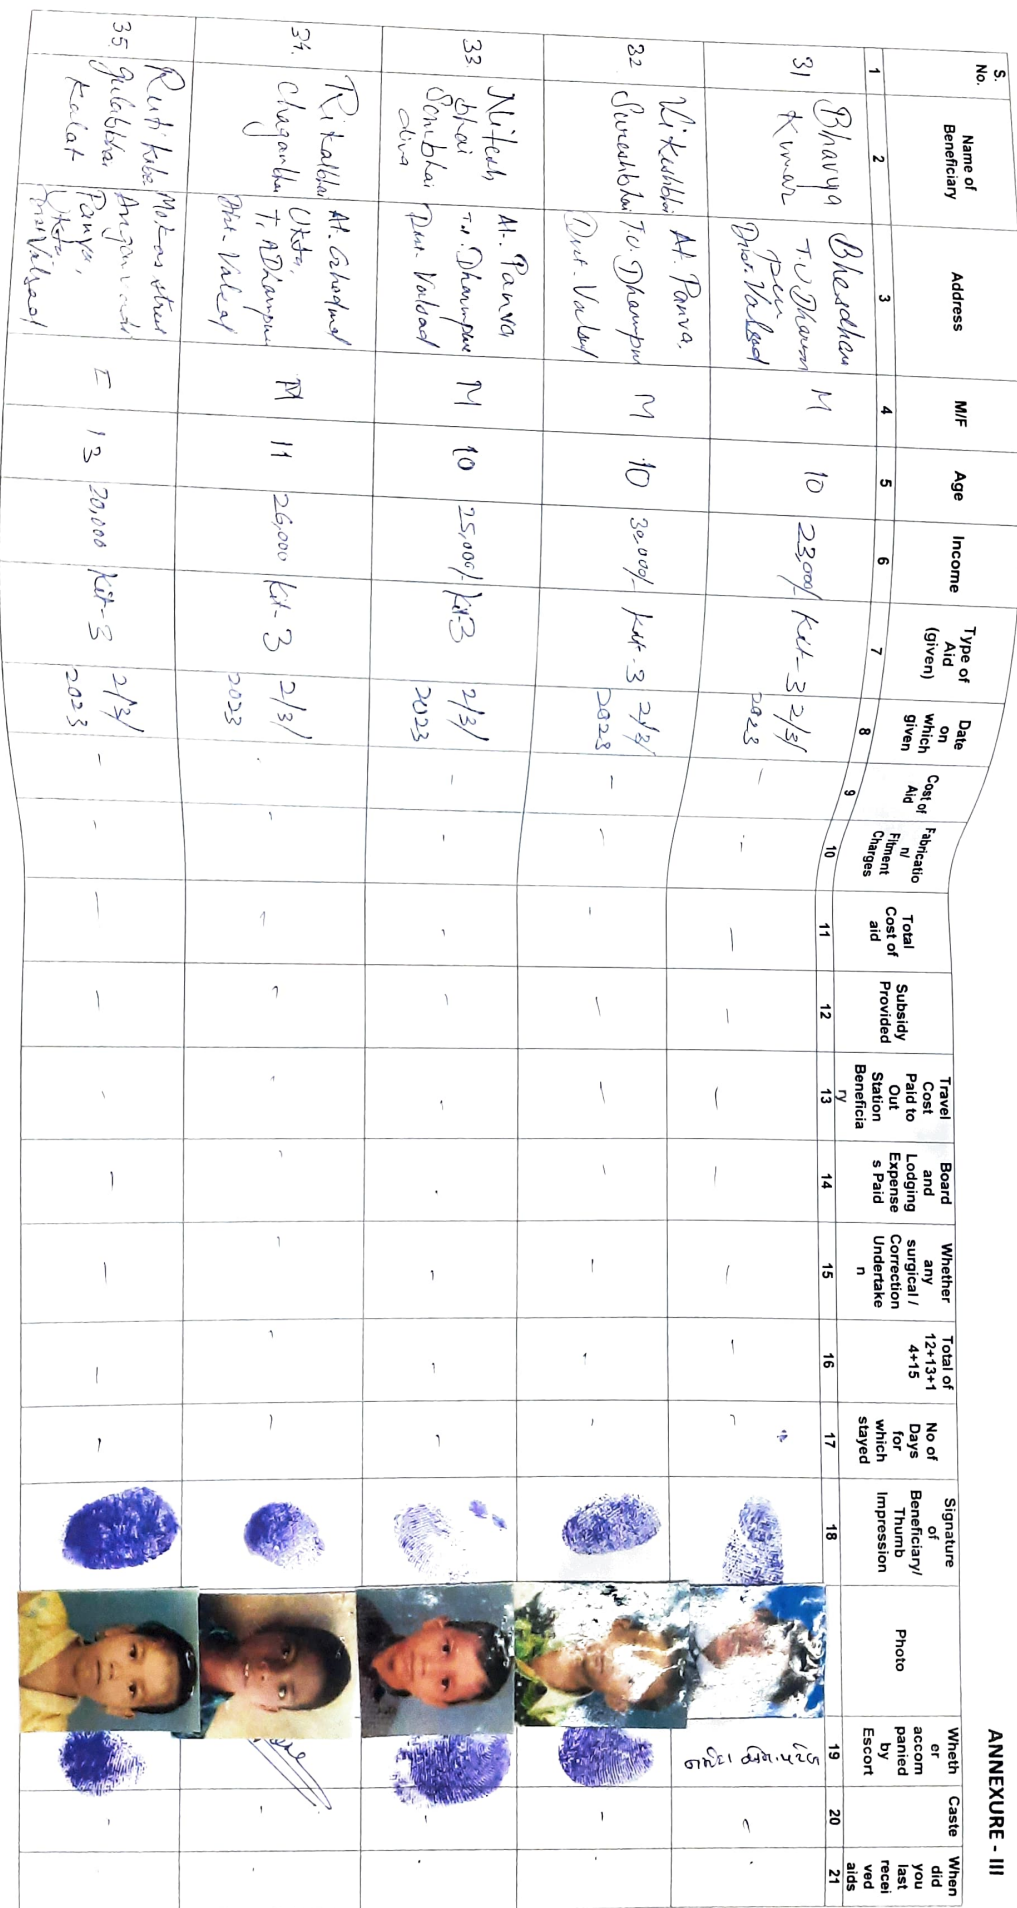 ANNEXURE - III
S. No.
Name of Beneficiary
Address
M/F
Age
Income
Type of Aid (given)
Date on which given
Cost of Aid
Fabricatio n/ Fitment Charges
Total Cost of aid
Subsidy Provided
Travel Cost Paid to Out Station Beneficia ry
Board and Lodging Expense s Paid
Whether any surgical / Correction Undertake n
Total of 12+13+1 4+15
No of Days for which stayed
Signature of Beneficiary/ Thumb Impression
Photo
Wheth er accom panied by Escort
Caste
When did you last recei ved aids
1 2 3 4 5 6 7 8 9 10 11 12 13 14 15 16 17 18 19 20 21
31 Bhavya Kumar Bhesdhara T.U Dharam pur Dist. Valsad M 10 23,000/- Kit-3 2/3/ 2023 - - - - - - - - -
32 Vikeshbhai Sureshbhai At. Panva. T.U. Dharmpur Dist. Valsad M 10 30,000/- Kit-3 2/3/ 2023 - - - - - - - - - -
33. Nitesh bhai Sonubhai diva At. Panva T.U. Dharmpur Dist. Valsad M 10 25,000/- Kit-3 2/3/ 2023 - - - - - - - - - -
34. Rikalbhai Chaganbhai At. Ukta, T, A Dharmpur Dist. Valsad M 11 26,000 Kit-3 2/3/ 2023 - - - - - - - - -
35. gulabbhai Kalat street Panva, Valsad F 13 20,000 Kit-3 2/3/ 2023 - - - - - - - - - -